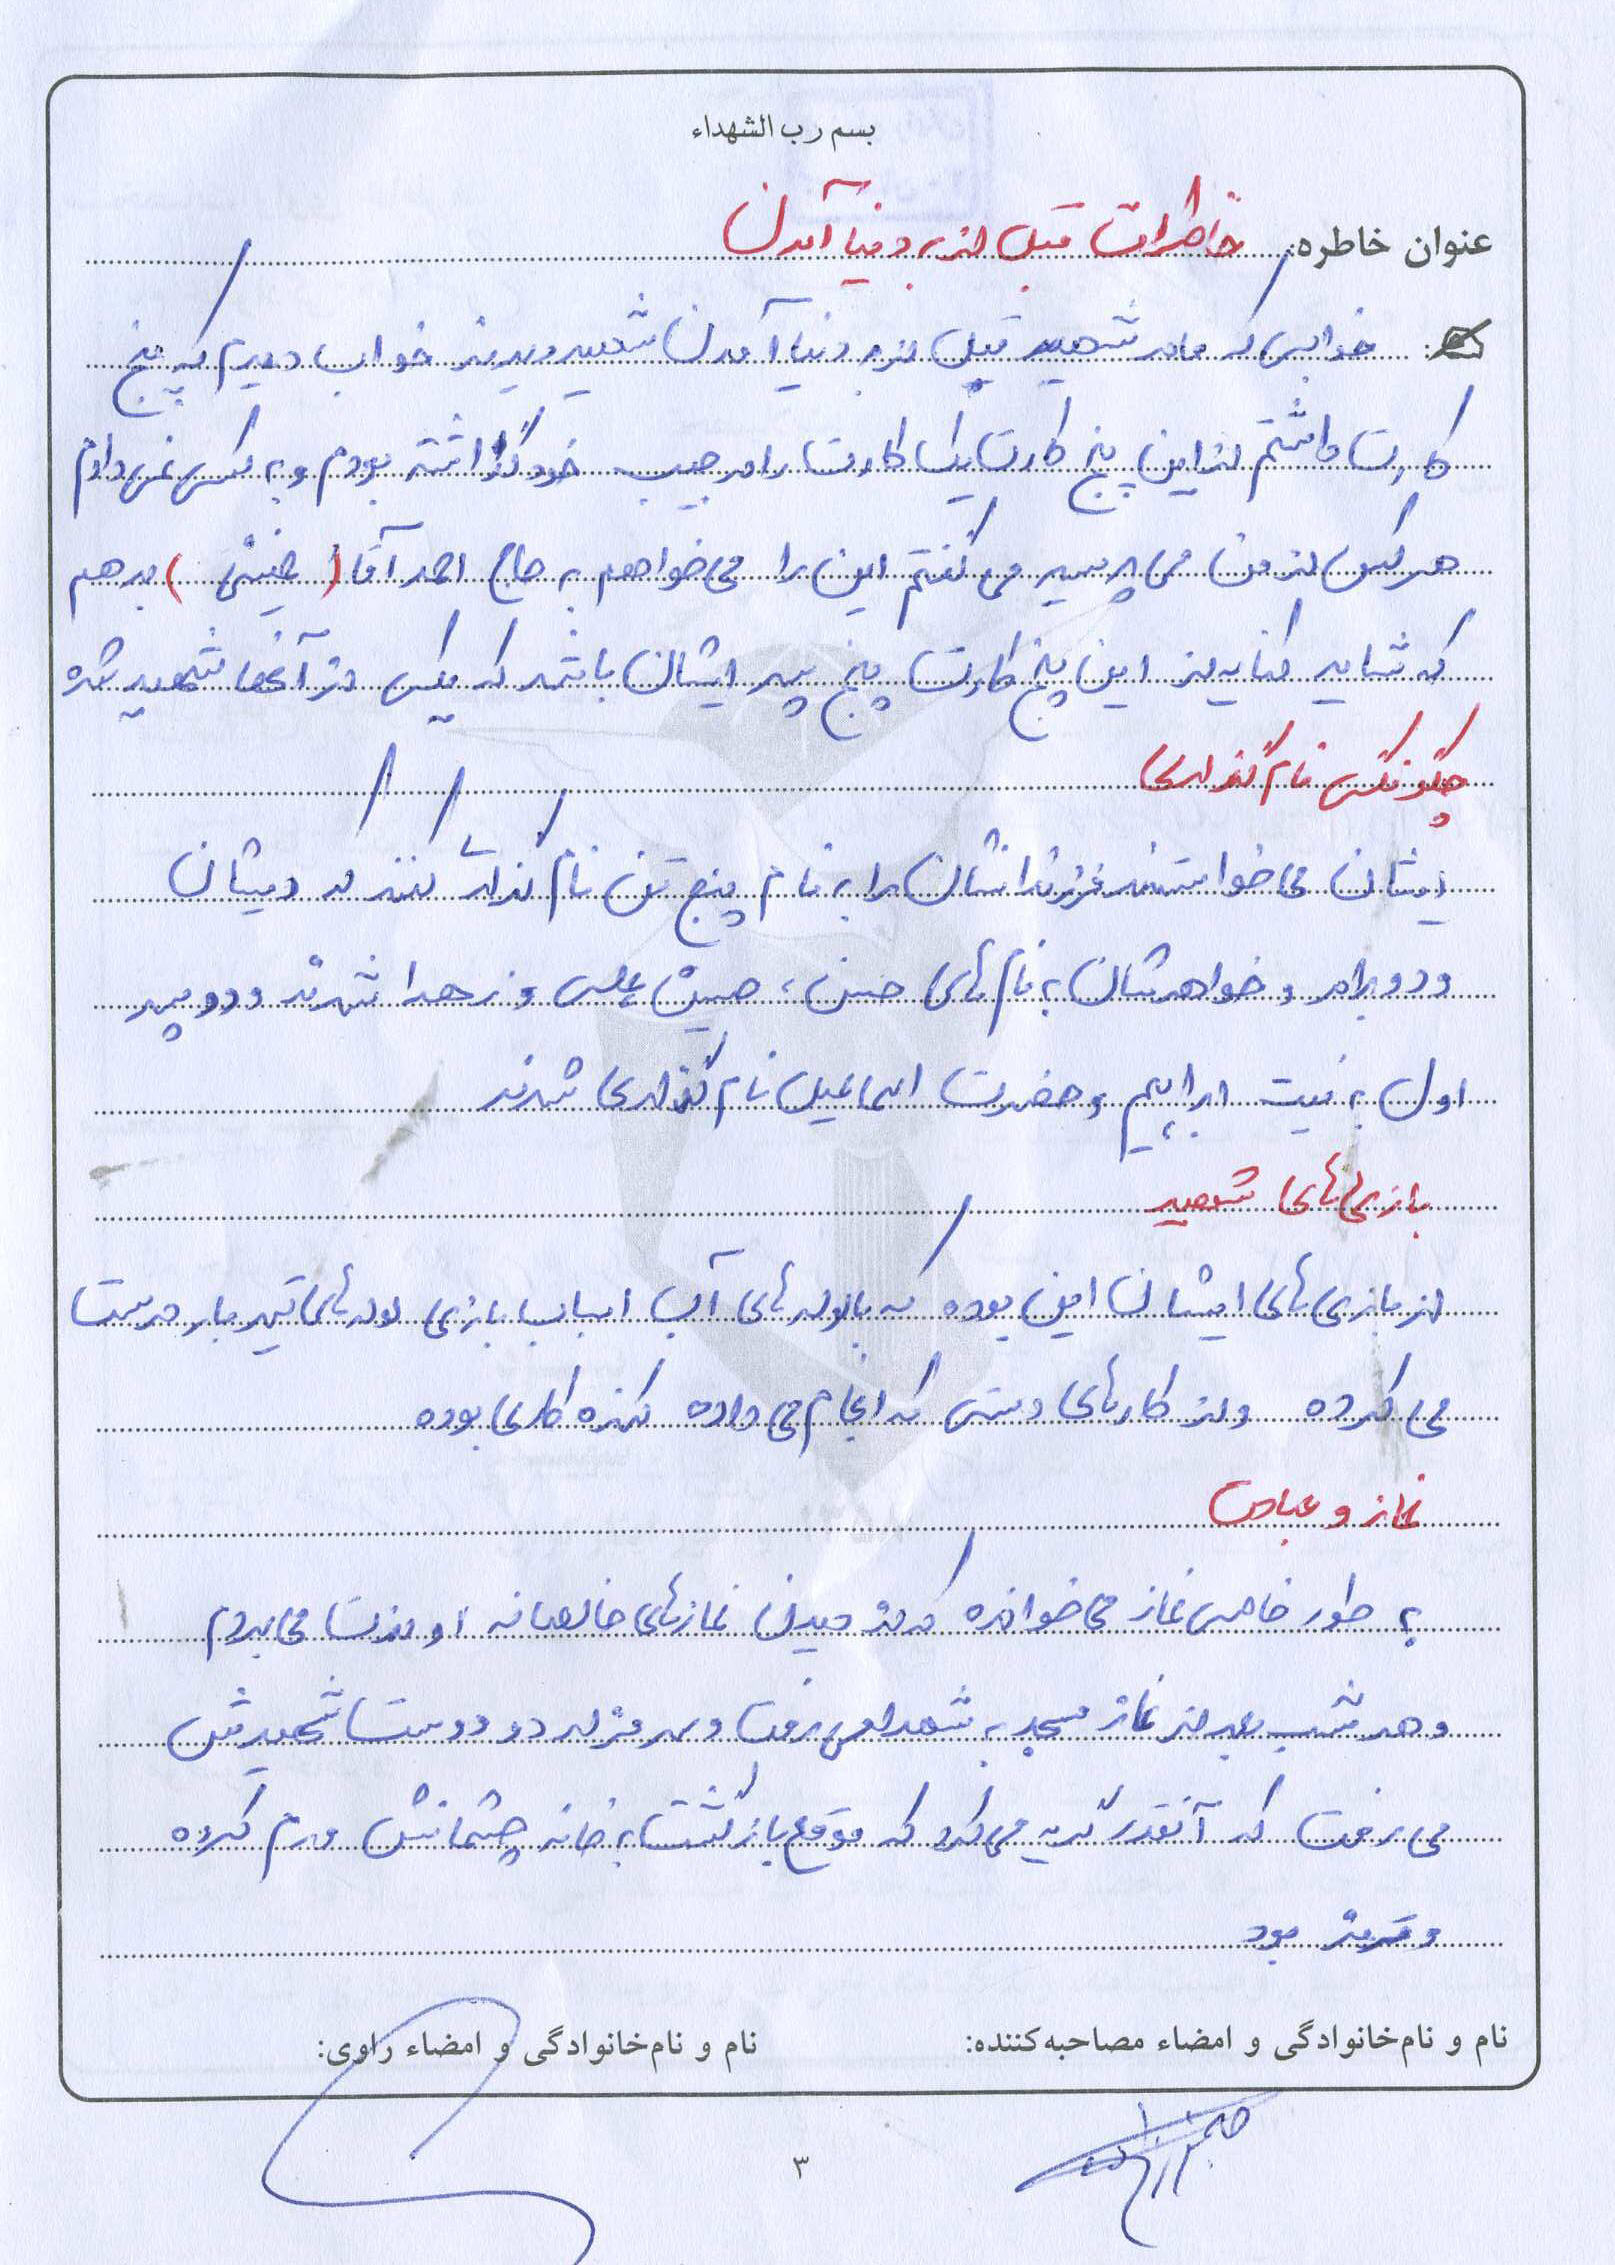 بسم رب الشهداء
عنوان خاطره: خاطرات قبل از به دنیا آمدن
خوابی که مادر شهید قبل از به دنیا آمدن شهید دیدند خواب دیدم که پنج
کارت داشتم از این پنج کارت یک کارت را در جیب خود گذاشته بودم و به کسی نمی دادم
هر کس از من می پرسید می گفتم این را می خواهم به حاج احمد آقا ( خمینی ) بدهم
که شاید کنایه از این پنج کارت پنج پسر ایشان باشد که یکی از آنها شهید شده
چگونگی نام گذاری
ایشان می خواستند فرزندانشان را به نام پنج تن نام گذاری کنند که ایشان
و دو برادر و خواهرشان به نام های حسن، حسین علی و زهرا شدند و دو پسر
اول به نیت ابراهیم و حضرت اسماعیل نام گذاری شدند
بازی های شهید
از بازی های ایشان این بوده که با لوله های آب اسباب بازی لوله های تیر بار درست
می کرده و از کارهای دستی که انجام می داده کنده کاری بوده
نماز و عبادت
به طور خاصی نماز می خوانده که از دیدن نمازهای خالصانه او لذت می بردم
و هر شب بعد از نماز مسجد به شهدا می رفت و سر مزار دو دوست شهیدش
می رفت که آنقدر گریه می کرد که موقع بازگشت به خانه چشمانش ورم کرده
و قرمز بود
نام و نام خانوادگی و امضاء مصاحبه کننده:
نام و نام خانوادگی و امضاء راوی:
۳